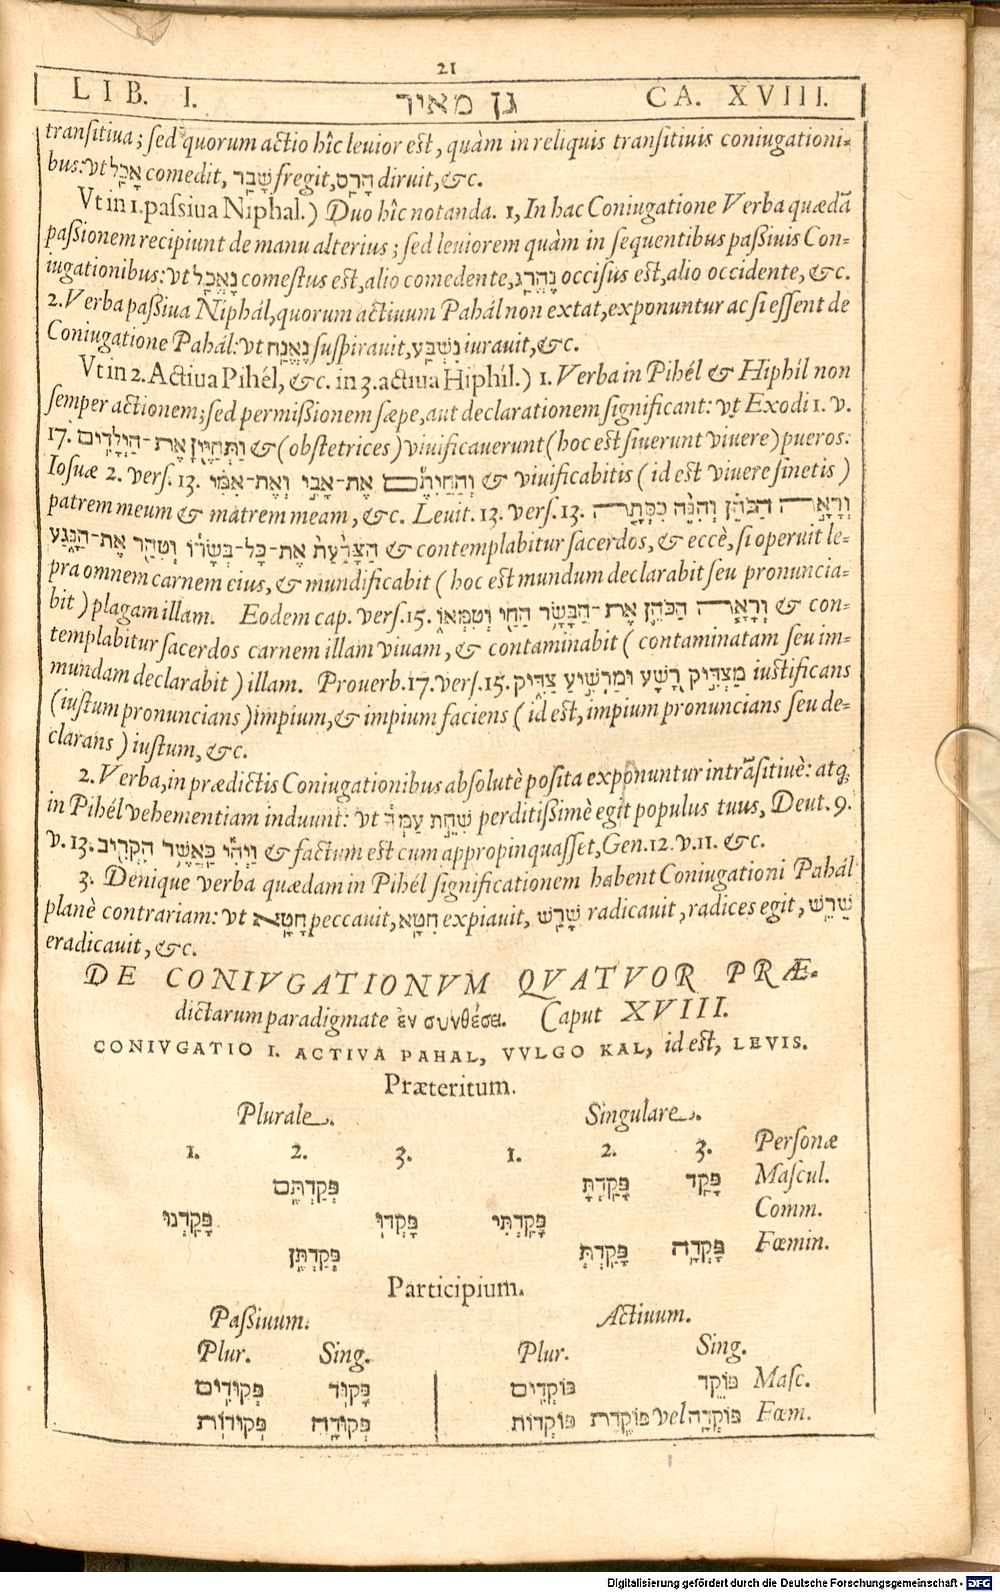 21
LIB. I. גן מאיר CA. XVIII.
transitiua; sed quorum actio hîc leuior est, quàm in reliquis transitiuis coniugationi-
bus: vt אָכַל comedit, שָׁבַר fregit, הָרַס diruit, &c.
Vt in 1. passiua Niphal.) Duo hîc notanda. 1, In hac Coniugatione Verba quædã
passionem recipiunt de manu alterius; sed leuiorem quàm in sequentibus passiuis Con-
iugationibus: vt נֶאֱכַל comestus est, alio comedente, נֶהֱרַג occisus est, alio occidente, &c.
2. Verba passiua Niphál, quorum actiuum Pahál non extat, exponuntur ac si essent de
Coniugatione Pahál: vt נֶאֱנַח suspirauit, נִשְׁבַּע iurauit, &c.
Vt in 2. Actiua Pihél, &c. in 3. actiua Hiphíl.) 1. Verba in Pihél & Hiphíl non
semper actionem; sed permissionem sæpe, aut declarationem significant: vt Exodi 1. v.
17. וַתְּחַיֶּיןָ אֶת-הַיְלָדִים & (obstetrices) viuificauerunt (hoc est siuerunt viuere) pueros:
Iosuæ 2. vers. 13. וְהַחֲיִתֶם אֶת-אָבִי וְאֶת-אִמִּי & viuificabitis (id est viuere sinetis)
patrem meum & matrem meam, &c. Leuit. 13. vers. 13. וְרָאָה הַכֹּהֵן וְהִנֵּה כִסְּתָה
הַצָּרַעַת אֶת-כָּל-בְּשָׂרוֹ וְטִהַר אֶת-הַנָּגַע & contemplabitur sacerdos, & eccè, si operuit le-
pra omnem carnem eius, & mundificabit (hoc est mundum declarabit seu pronuncia-
bit) plagam illam. Eodem cap. vers. 15. וְרָאָה הַכֹּהֵן אֶת-הַבָּשָׂר הַחַי וְטִמְּאוֹ & con-
templabitur sacerdos carnem illam viuam, & contaminabit (contaminatam seu im-
mundam declarabit) illam. Prouerb. 17. vers. 15. מַצְדִּיק רָשָׁע וּמַרְשִׁיעַ צַדִּיק iustificans
(iustum pronuncians) impium, & impium faciens (id est, impium pronuncians seu de-
clarans) iustum, &c.
2. Verba, in prædictis Coniugationibus absolutè posita exponuntur intrãsitiuè: atq;
in Pihél vehementiam induunt: vt שִׁחֵת עַמְּךָ perditissimè egit populus tuus, Deut. 9.
v. 13. וַיְהִי כַּאֲשֶׁר הִקְרִיב & factum est cum appropinquasset, Gen. 12. v. 11. &c.
3. Denique verba quædam in Pihél significationem habent Coniugationi Pahál
planè contrariam: vt חָטָא peccauit, חִטָּא expiauit, שָׁרַשׁ radicauit, radices egit, שֵׁרֵשׁ
eradicauit, &c.
DE CONIVGATIONVM QVATVOR PRÆ-
dictarum paradigmate ἐν συνθέσει. Caput XVIII.
CONIVGATIO I. ACTIVA PAHAL, VVLGO KAL, id est, LEVIS.
Præteritum.
Plurale. Singulare.
1. 2. 3. 1. 2. 3. Personæ
פְּקַדְתֶּם פָּקַדְתָּ פָּקַד Mascul.
פָּקַדְנוּ פָּקְדוּ פָּקַדְתִּי Comm.
פְּקַדְתֶּן פָּקַדְתְּ פָּקְדָה Fœmin.
Participium.
Passiuum. Actiuum.
Plur. Sing. Plur. Sing.
פְּקוּדִים פָּקוּד פּוֹקְדִים פּוֹקֵד Masc.
פְּקוּדוֹת פְּקוּדָה פּוֹקְדוֹת פּוֹקֶדֶת vel פּוֹקְדָה Fœm.
Digitalisierung gefördert durch die Deutsche Forschungsgemeinschaft - DFG